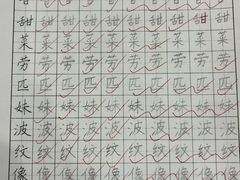 甜 甜 甜 甜 甜 甜 甜 甜 甜
菜 菜 菜 菜 菜 菜 菜 菜 菜
劳 劳 劳 劳 劳 劳 劳 劳 劳
匹 匹 匹 匹 匹 匹 匹 匹 匹
妹 妹 妹 妹 妹 妹 妹 妹 妹
波 波 波 波 波 波 波 波 波
纹 纹 纹 纹 纹 纹 纹 纹 纹
像 像 像 像 像 像 像 像 像